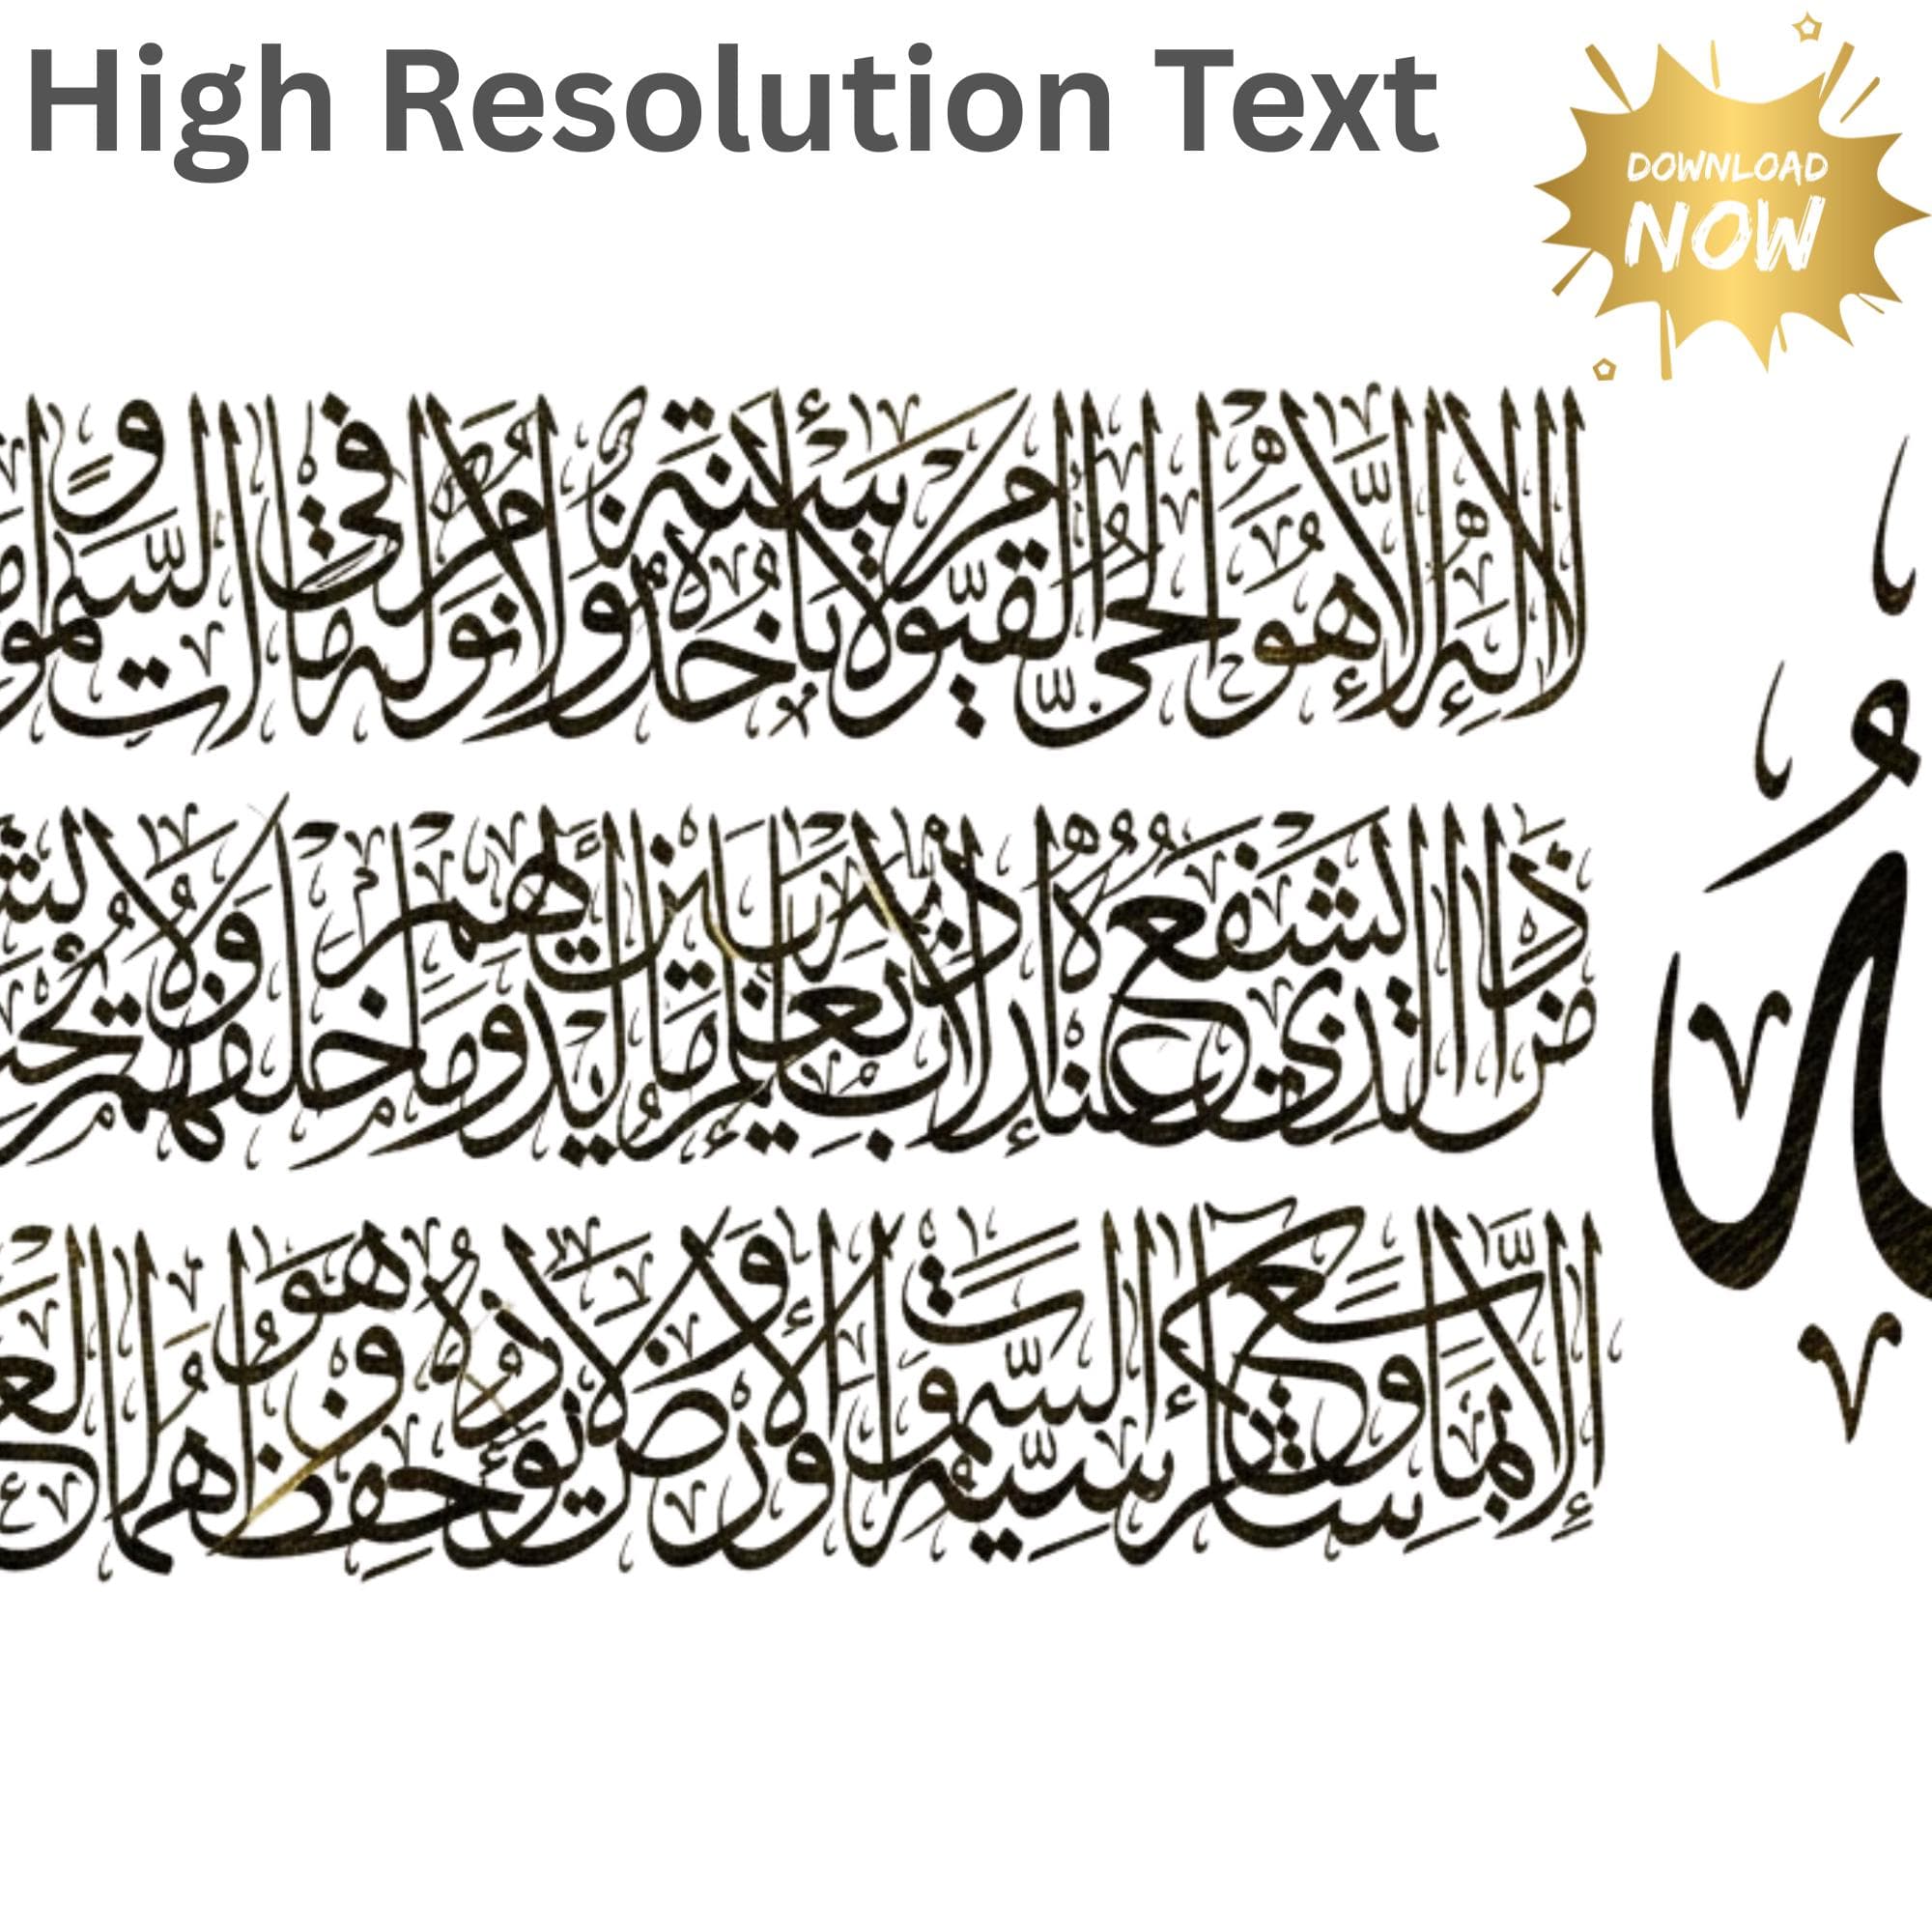 High Resolution Text
DOWNLOAD
NOW
لا إله إلا هو الحي القيوم لا تأخذه سنة ولا نوم له ما في السموات و
من ذا الذي يشفع عنده إلا بإذنه يعلم ما بين أيديهم وما خلفهم ولا
إلا بما شاء وسع كرسيه السموات والأرض ولا يؤده حفظهما وهو